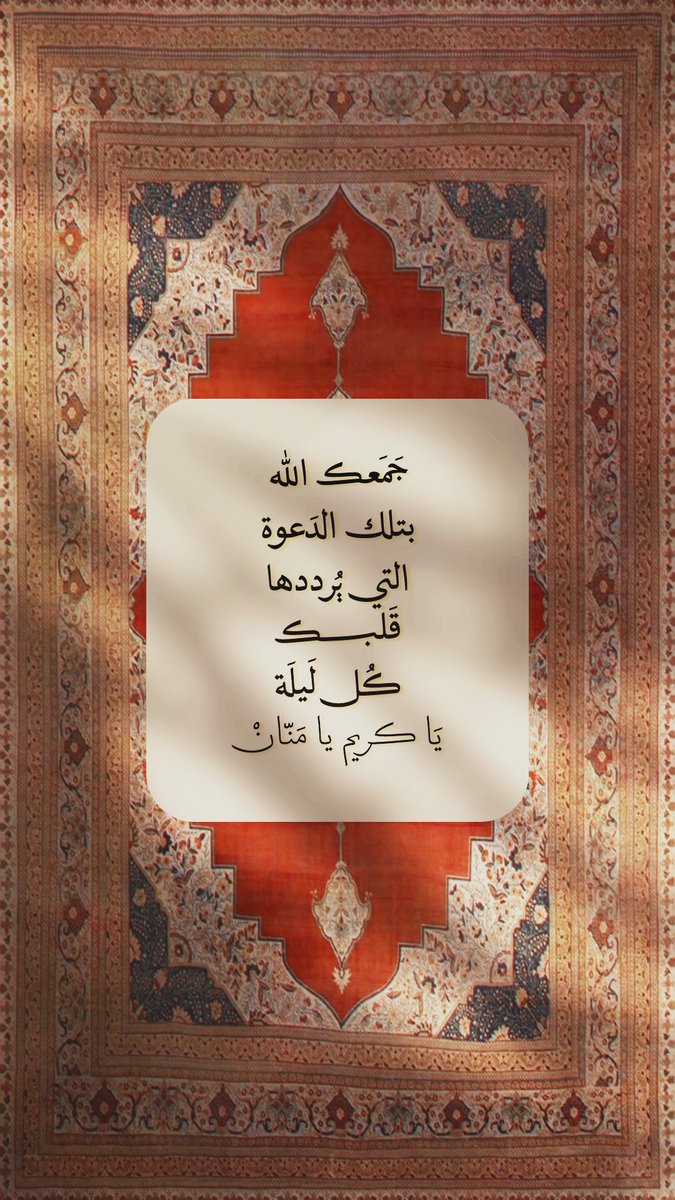 جَمَعک الله
بتلك الدَعوة
التي يُرددها
قَلبــک
كُل لَيلَة
يَا كريم يا مَنّانْ